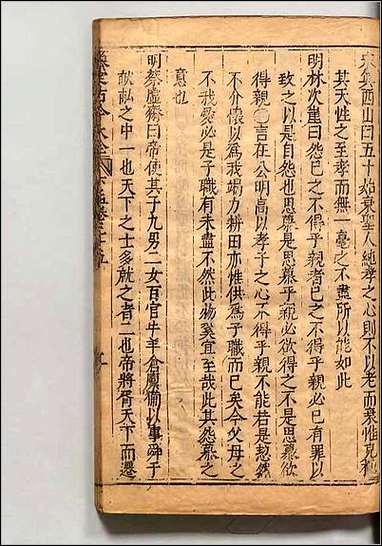 宋真西山曰五十始衰聖人純孝之心則不以老而衰惟見
其天性之至孝而無一毫之不盡所以能如此
明林次崖曰怨己之不得乎親者己之不得乎親必己有罪以
致之以是自怨也思慕是思慕乎親必欲得之不是思慕欲
得親○言在公明高以孝子之心不得乎親不能若是恝然
不介懷以為我竭力耕田亦惟供為子職而已矣今父母之
不我愛必是子職有未盡不然此物奚宜至哉此其怨慕之
意也
明蔡虛齋曰帝使其子九男二女百官牛羊倉廩備以事舜于
畎畝之中一也天下之士多就之者二也帝將胥天下而遷